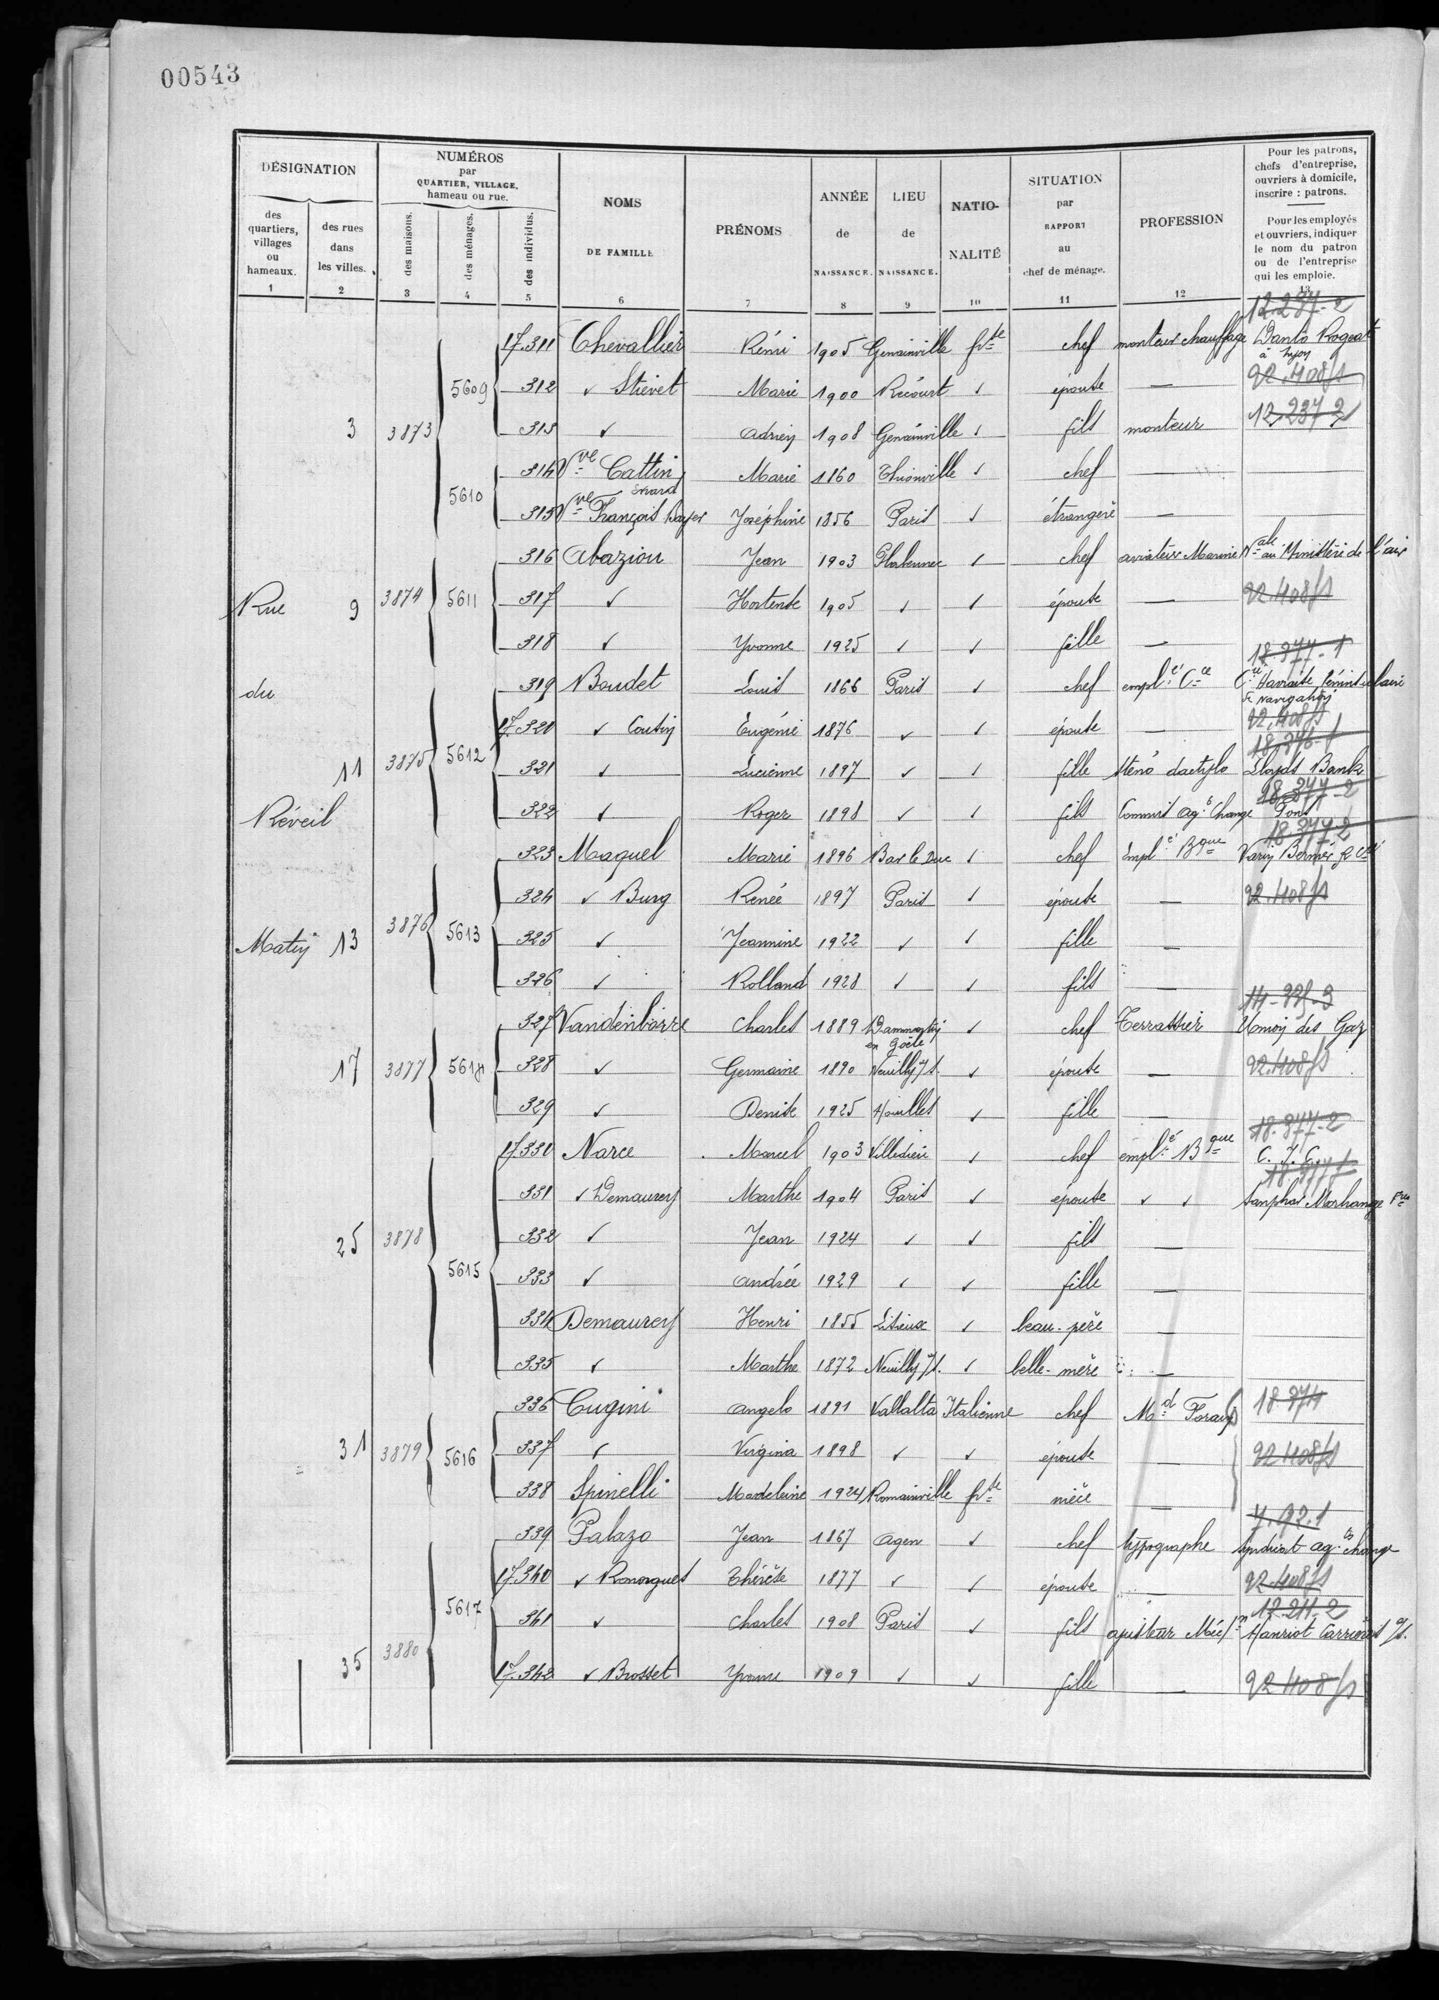 00543
DÉSIGNATION
des quartiers, villages ou hameaux.
des rues dans les villes.
NUMÉROS par QUARTIER, VILLAGE, hameau ou rue.
des maisons.
des ménages.
des individus.
NOMS DE FAMILLE
PRÉNOMS
ANNÉE de NAISSANCE.
LIEU de NAISSANCE.
NATIO-NALITÉ
SITUATION par RAPPORT au chef de ménage.
PROFESSION
Pour les patrons, chefs d'entreprise, ouvriers à domicile, inscrire : patrons.
Pour les employés et ouvriers, indiquer le nom du patron ou de l'entreprise qui les emploie.
1 2 3 4 5 6 7 8 9 10 11 12 13
12.237-2
17.311 Chevallier Rémi 1905 Genainville fr-se chef monteur chauffage
à Lyon
92.408/1
5609 312 ✓ Stievet Marie 1900 Récourt ✓ epouse —
12.237 2
3 3873 313 ✓ Adrien 1908 Genainville ✓ fils monteur
314 Vve Cattin Marie 1860 Thionville ✓ chef —
5610 315 Vve François Joséphine 1856 Paris ✓ étrangère —
316 Abaziou Jean 1903 ✓ chef aviateur Marine Nale au Ministère de l'air
Rue 9 3874 5611 317 ✓ Hortense 1905 ✓ ✓ épouse — 92.408/1
318 ✓ Yvonne 1925 ✓ ✓ fille —
18.377-1
du 319 Boudet Louis 1866 Paris ✓ chef empl.é Cce Cie Havraise Péninsulaire
de Navigation
92.408/1
17.320 ✓ Cousin Eugénie 1876 ✓ ✓ épouse —
18.376-1
11 3875 5612 321 ✓ Lucienne 1897 ✓ ✓ fille Sténo dactylo Lloyds Bank
18.377-2
Réveil 322 ✓ Roger 1898 ✓ ✓ fils Commis Ag.t Change Pons
18.377-2
323 Maquel Marie 1896 Bar le Duc ✓ chef Empl.é Bque
324 ✓ Burg Renée 1897 Paris ✓ épouse — 92.408/1
Matin 13 3876 5613 325 ✓ Jeannine 1922 ✓ ✓ fille —
326 ✓ Rolland 1928 ✓ ✓ fils —
327 Vandenbarre Charles 1889 Dammartin en Goële ✓ chef Terrassier Union des Gaz
17 3877 5614 328 ✓ Germaine 1890 Neuilly s/S. ✓ épouse — 92.408/1
329 ✓ Denise 1925 Houilles ✓ fille —
18.377-2
17.330 Narce Marcel 1903 Villedieu ✓ chef empl.é Bque
18.377 1
331 ✓ Demaurey Marthe 1904 Paris ✓ epouse ✓ ✓
25 3878 332 ✓ Jean 1924 ✓ ✓ fils —
5615 333 ✓ Andrée 1929 ✓ ✓ fille —
334 Demaurey Henri 1855 Lisieux ✓ beau-père —
335 ✓ Marthe 1872 Neuilly s/S. ✓ belle-mère —
336 Cugini Angelo 1891 Vallalta Italienne chef Md Forain 18 374
31 3879 5616 337 ✓ Virgina 1898 ✓ ✓ épouse — 92 408/1
338 Spinelli Madeleine 1924 Romainville fr-se nièce —
4.92.1
339 Palazo Jean 1867 Agen ✓ chef typographe syndicat ag.ts change
17.340 ✓ Thérèse 1877 ✓ ✓ épouse — 92 408/1
12.211-2
5617 341 ✓ Charles 1908 Paris ✓ fils ajusteur Méc/n Hanriot Carrières s/S.
35 3880 17.342 ✓ Brosset Yvonne 1909 ✓ ✓ fille — 92 408/1